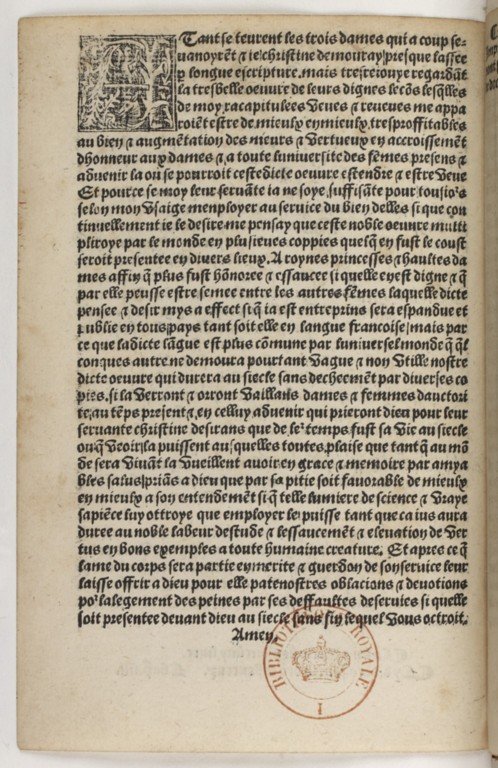 ATant se teurent les trois dames qui a coup se⸗
uanoyrēt ⁊ ie christine demouray presque lassee
p longue escripture. mais tresreiouye regardāt
la tresbelle oeuure de leurs dignes lecōs lesq̄lles
de moy racapitulees Veues ⁊ reueues me appa
roiēt estre de. mieulx en mieulx. tresproffitables
au bien ⁊ augmētation des meurs ⁊ Vertueux en accroissemēt
dhonneur aux dames ⁊ a toute luniuersite des fēmes presens ⁊
aduenir la ou se pourroit ceste dicte oeuure estendre ⁊ estre Veue
Et pource se moy leur seruāte ia ne soye. suffisāte pour tousio⁹s
selon mon Vsaige menployer au seruice du bien delles si que con
tinuellement ie le desire me pensay que ceste noble oeuure multi
pliroye par le monde en plusieues coppies quelq̄ en fust le coust
seroit presentee en diuers lieux. A roynes princesses ⁊ haultes da
mes affin q̄ plus fust hōnoree ⁊ essaucee si quelle en est digne ⁊ q̄
par elle peusse estre semee entre les autres fēmes laquelle dicte
pensee ⁊ desir mys a effect si q̄ ia est entreprins sera espandue et
publie en tous pays tant soit elle en langue francoise/mais par
ce que ladicte lāgue est plus cōmune par luniuersel monde q̄ q̄l
conques autre ne demoura pourtant Vague ⁊ non Vtille nostre
dicte oeuure qui durera au siecle sans decheemēt par diuerses co
pies. si la Verront ⁊ orront Vaillans dames ⁊ femmes dauctori
te/au tēps present ⁊ en celluy aduenir qui prieront dieu pour leur
seruante christine desirans que de le² temps fust sa Vie au siecle
ou q̄ Veoir la puissent ausquelles toutes plaise que tant q̄ au mō
de sera Viuāt la Vueillent auoir en grace ⁊ memoire par amya
bles salus/priās a dieu que par sa pitie soit fauorable de mieulx
en mieulx a son entendemēt si q̄ telle lumiere de science ⁊ Vraye
sapiēce luy ottroye que employer le puisse tant que ca ius aura
duree au noble labeur destude ⁊ lessaucemēt ⁊ eleuation de Ver
tus en bons exemples a toute humaine creature. Et apres ce q̄
lame du corps sera partie en merite ⁊ guerdon de son seruice leur
laisse offrir a dieu pour elle patenostres oblacions ⁊ deuotions
po² lalegement des peines par ses deffaultes deseruies si quelle
soit presentee deuant dieu au siecle sans fin lequel Vous octroit.
Amen.
BIBLIOTHEQUE ROYALE
I